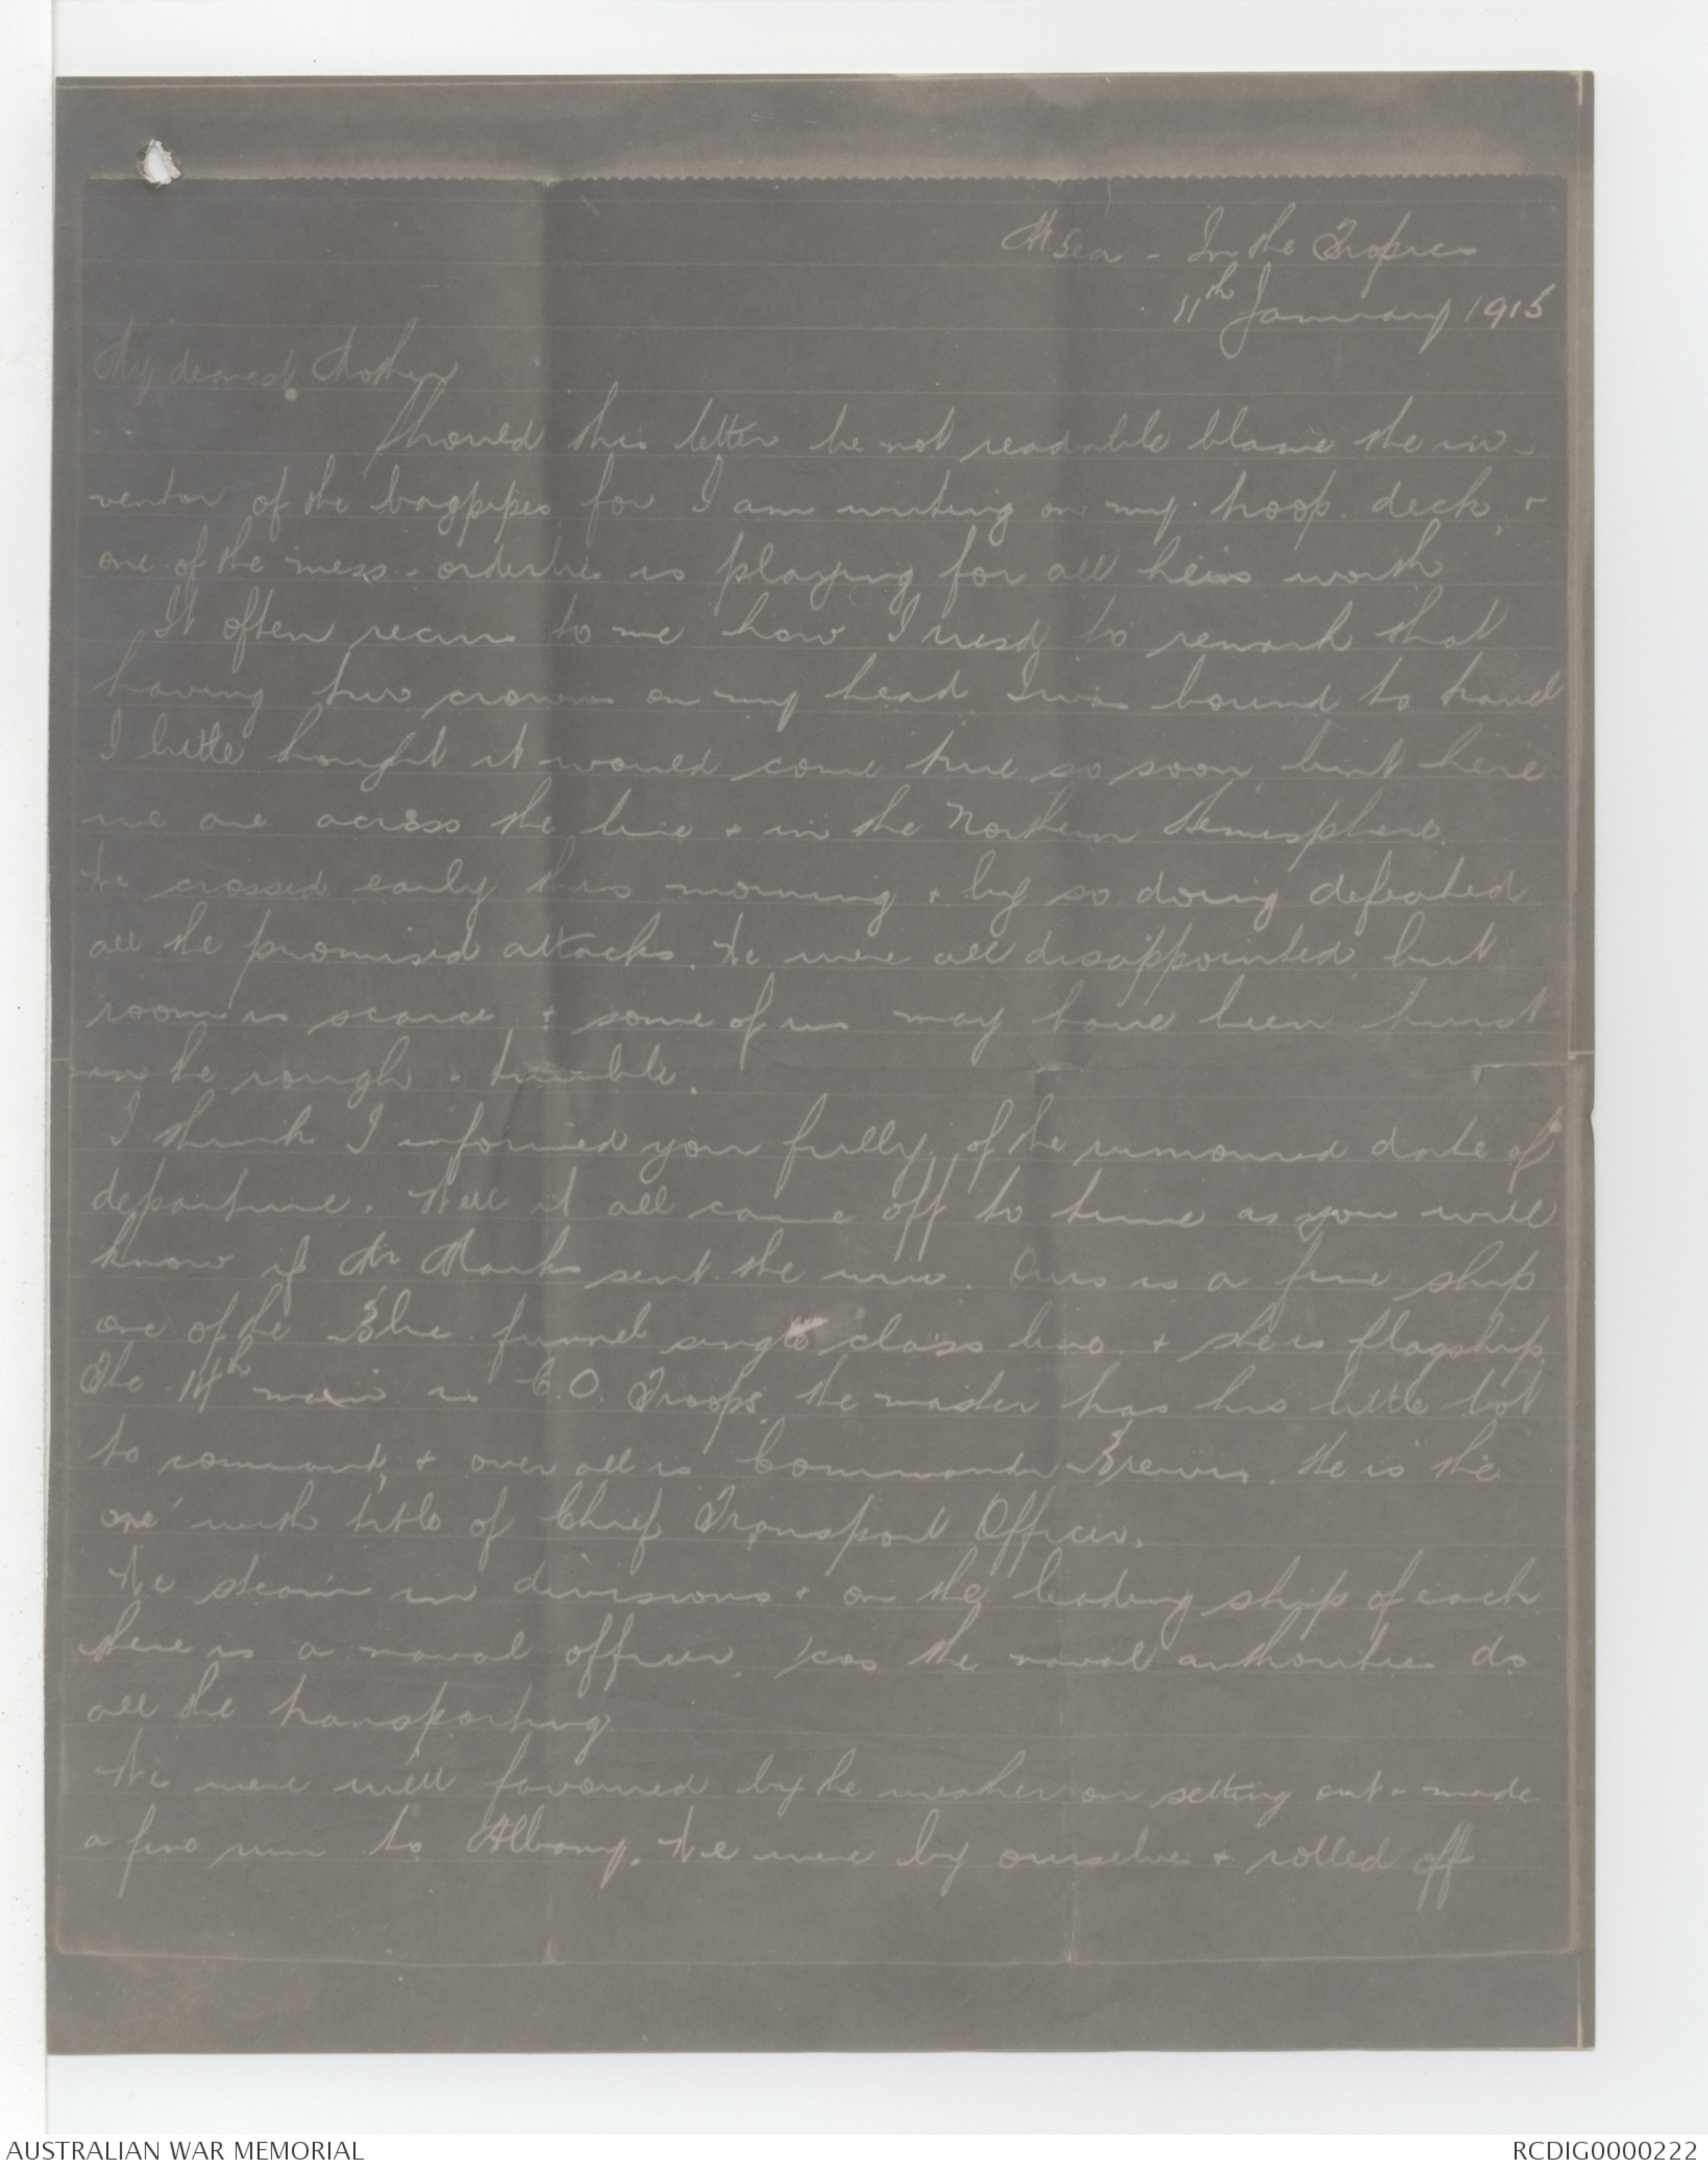 At Sea - In the Tropics
11th January 1915
My dearest Mother
Should this letter be not readable blame the in-
ventor of the bagpipes for I am writing on my troop deck, +
one of the mess-orderlies is playing for all he is worth
It often recurs to me how I used to remark that
having two crowns on my head I was bound to travel
I little thought it would come true so soon, but here
we are across the line + in the Northern Hemisphere.
We crossed early this morning + by so doing defeated
all the promised attacks. We were all disappointed, but
room is scarce + some of us may have been hurt
in the rough + tumble.
I think I informed you fully of the rumoured date of
departure. Well it all came off to time as you will
know if Mr Marks sent the wire. Ours is a fine ship
one of the Blue funnel single class line + she is flagship.
The 14th main is C.O. Troops, the master has his little lot
to command, + over all is Commander Brewis. He is the
one with title of Chief Transport Officer.
We steam in divisions + on the leading ship of each
there is a naval officer, yes the naval authorities do
all the transporting
We were well favoured by the weather on setting out + made
a fine run to Albany. We were by ourselves + rolled off
AUSTRALIAN WAR MEMORIAL
RCDIG0000222